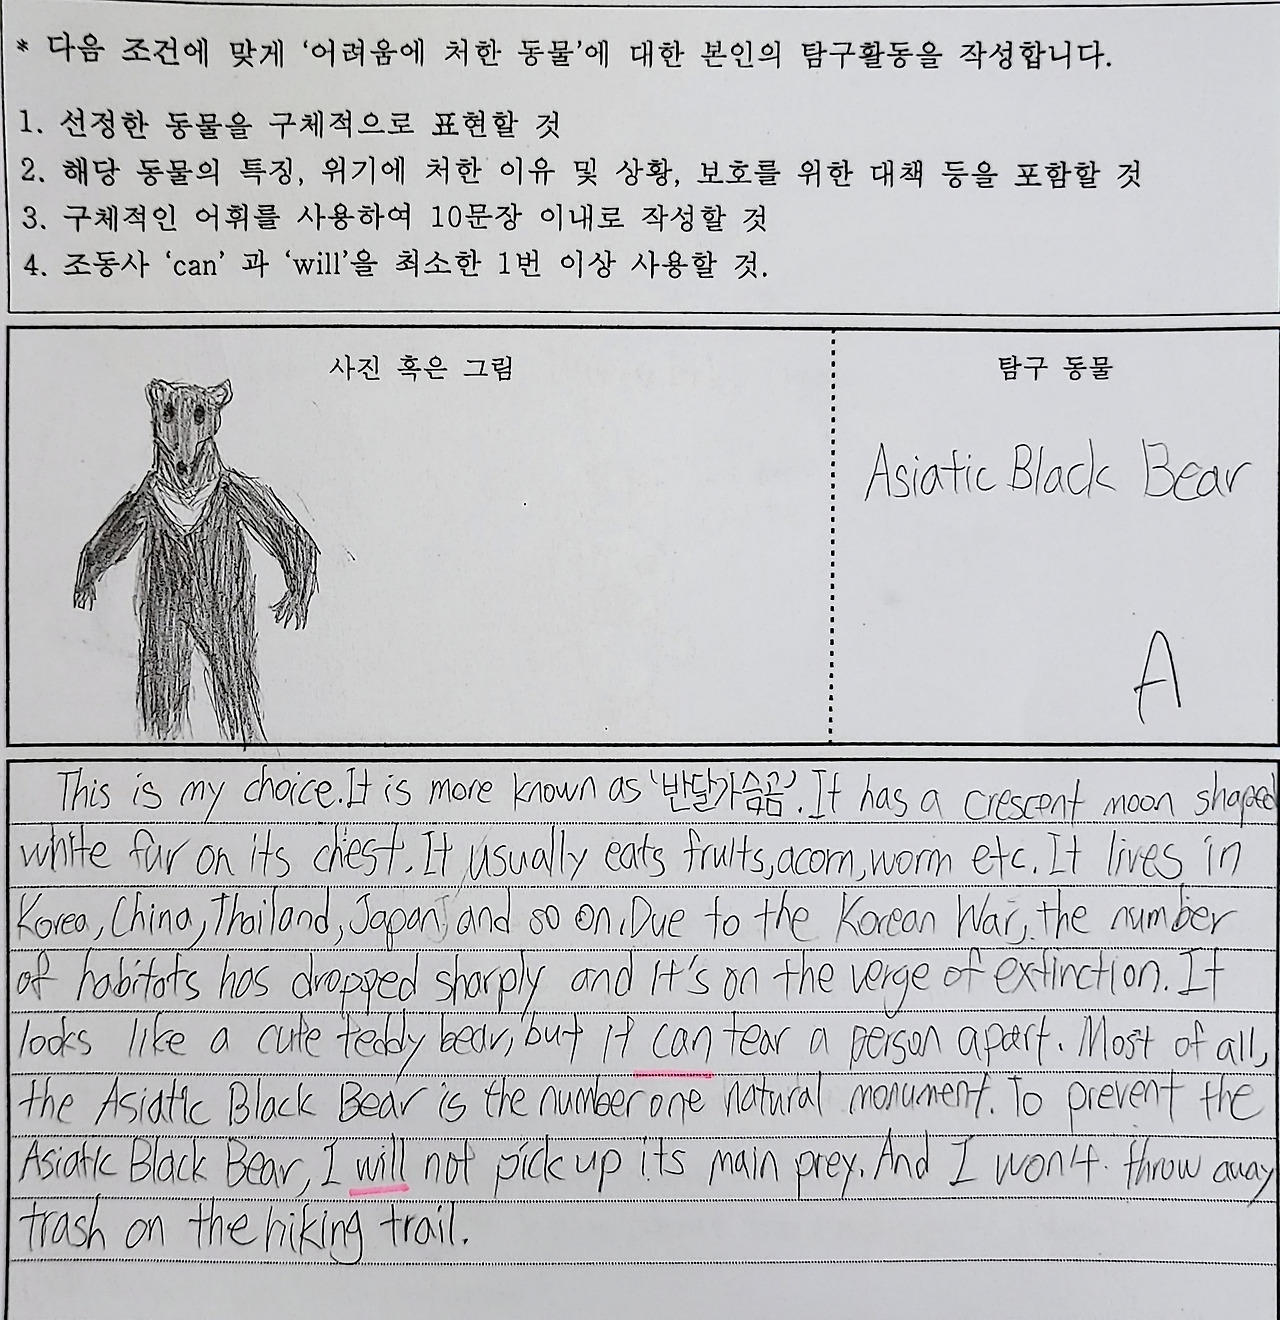 * 다음 조건에 맞게 '어려움에 처한 동물'에 대한 본인의 탐구활동을 작성합니다.
1. 선정한 동물을 구체적으로 표현할 것
2. 해당 동물의 특징, 위기에 처한 이유 및 상황, 보호를 위한 대책 등을 포함할 것
3. 구체적인 어휘를 사용하여 10문장 이내로 작성할 것
4. 조동사 'can' 과 'will'을 최소한 1번 이상 사용할 것.
사진 혹은 그림
탐구 동물
Asiatic Black Bear
A
This is my choice. It is more known as '반달가슴곰'. It has a crescent moon shaped
white fur on its chest. It usually eats fruits, acorn, worm etc. It lives in
Korea, China, Thailand, Japan, and so on. Due to the Korean War, the number
of habitats has dropped sharply and it's on the verge of extinction. It
looks like a cute teddy bear, but it can tear a person apart. Most of all,
the Asiatic Black Bear is the number one natural monument. To prevent the
Asiatic Black Bear, I will not pick up its main prey. And I won't throw away
trash on the hiking trail.